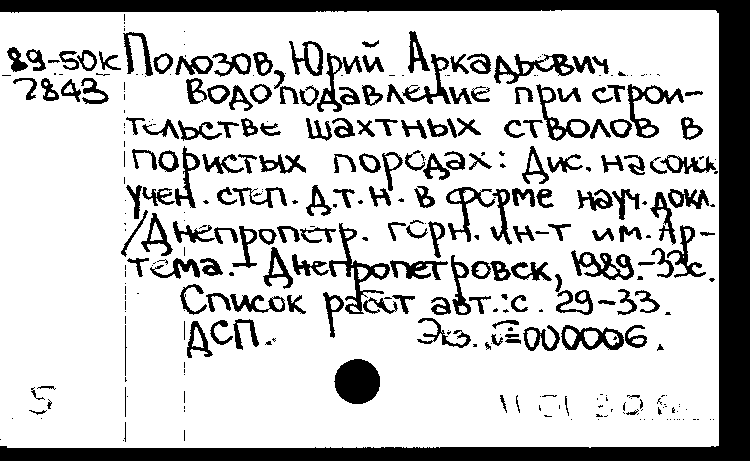 89-50к Полозов, Юрий Аркадьевич.
2843 Водоподавление при строи-
тельстве шахтных стволов в
пористых породах: Дис. на соиск.
учен. степ. д.т.н. в форме науч. докл.
/Днепропетр. горн. ин-т им. Ар-
тема. - Днепропетровск, 1989. - 33 с.
Список работ авт.: с. 29-33.
ДСП. Экз. №=000006.
5